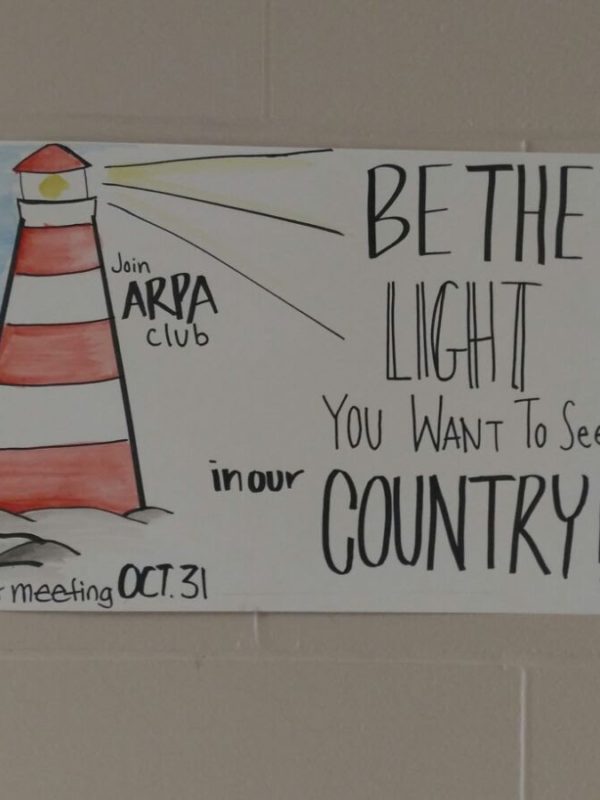 Join
ARPA
club
BE THE
LIGHT
YOU WANT To See
in our COUNTRY!
meeting OCT. 31